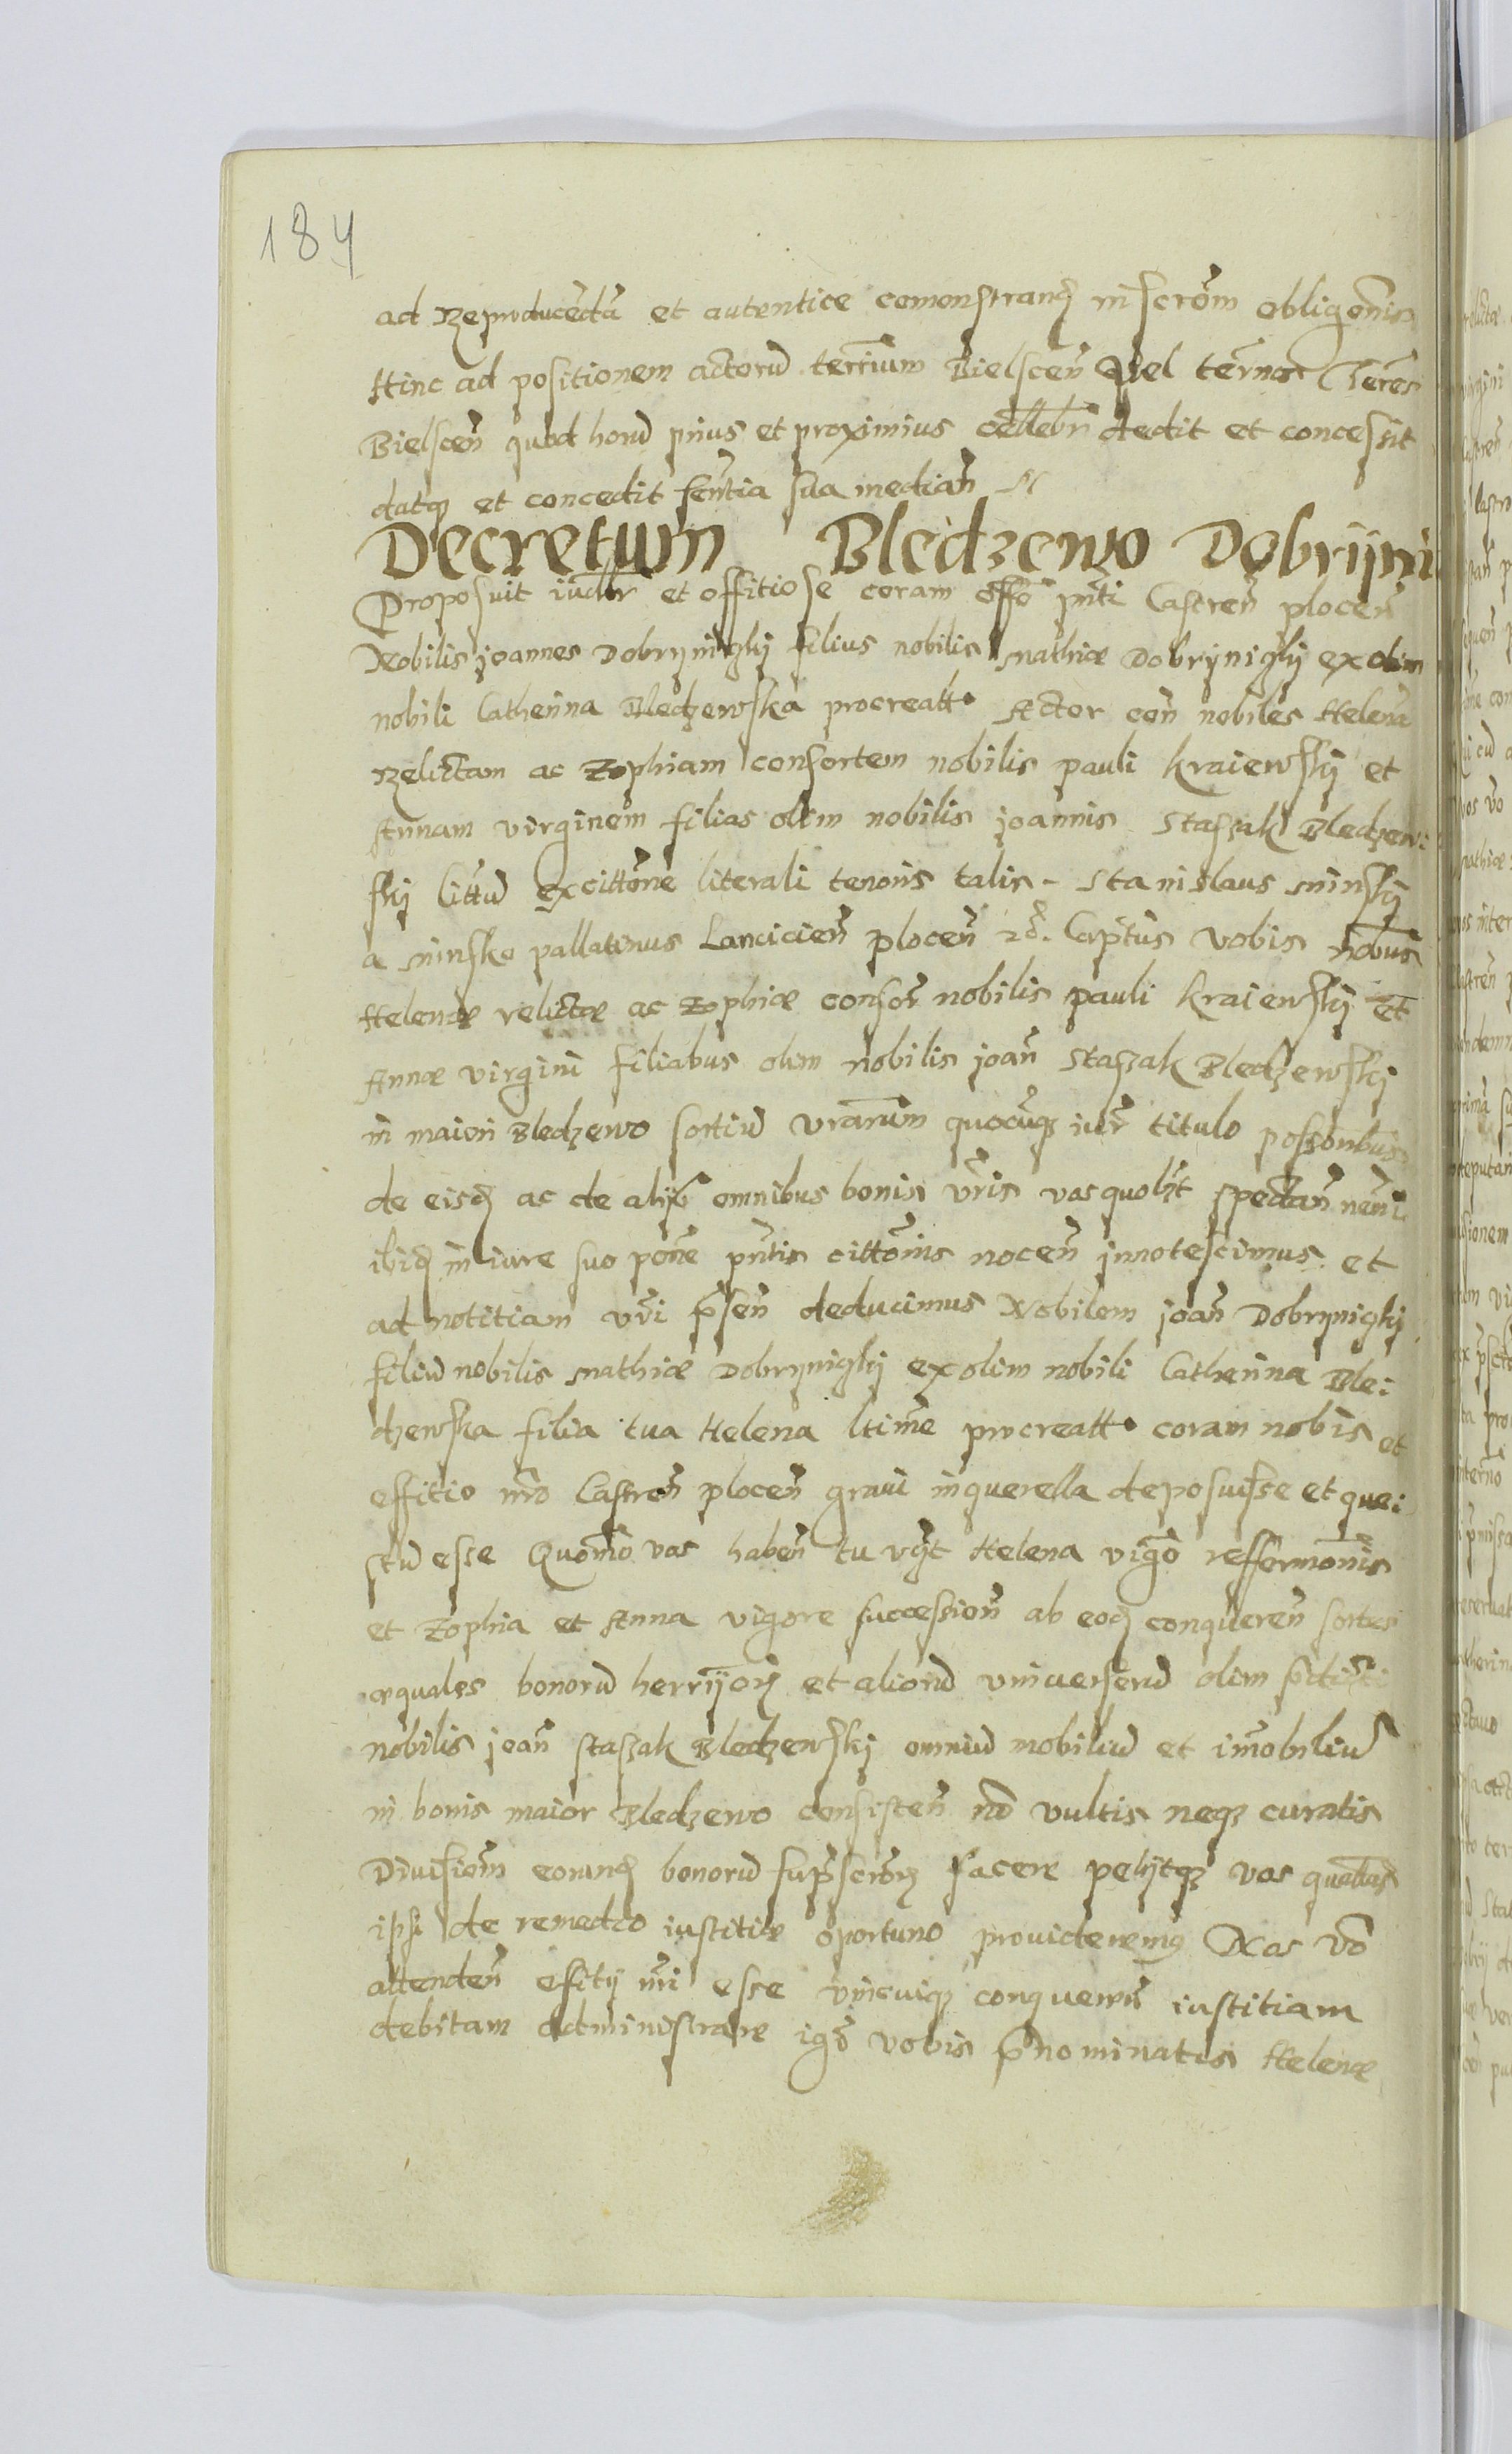 184
ad Reproducēdā et autentice comonstrand inscrōm obligōnis
Hinc ad positionem actorū terrium Bielscen̄ vel termos Terres
Bielscen̄ quod horū prius et proximius celebr dedit et concessit
datq et concedit sentia sua median̄
Decretum Bledzewo Dobrijni
Proposuit iudlr et offitiose coram offo pnti Castren̄ plocen̄
Nobilis joannes Dobryniczkj filius nobilis Mathiæ Dobrijniczkj ex olim
nobili Catherina Bledzewska procreatt Actor con nobiles Helenā
Relictam ac Zophiam consortem nobilis pauli Kraiewskij et
Annam virginem filias olim nobilis joannis Staszak Bledzew:
skj littū ex cittōne literali tenoris talis - Stanislaus Minskij
a Minsko pallatinus Lancicien̄ plocen̄ Captus Vobis nōbus
Helenæ relictæ ac Zophiæ consor nobilis pauli Kraiewskij et
Annæ virgini filiabus olim nobilis joan̄ Staszak Bledzewskj
in maiori Bledzewo sortiū vrarum quocūq iure titulo possonibus
de eisd ac de alijs omnibus bonis vr̄is vas quolzt spectan̄ nem̄i
ibid in iure suo pōne pn̄tis cittōnis nocen̄ jnnotescimus et
ad notitiam vr̄i p̄sen̄ deducimus Nobilem joan̄ Dobryniczkj
filiū nobilis Mathiæ Dobryniczkj ex olim nobili Catherina Ble:
dzewska filia tua Helena ltime procreatt coram nobis et
offitio nr̄o Castren̄ plocen̄ graui in querella deposuisse et que:
stū esse Quomō vos haben̄ tu vzt Helena vigō refformōnis
et Zophia et Anna vigore succession̄ ab eod conqueren̄ sortes
æquales bonorū herrijor et aliorū vniuersorū olim
nobilis joan̄ staszak Bledzewskj omniū mobiliū et im̄obiliū
in bonis maior Bledzewo consisten̄ nō vultis neq curatis
Diuisiōm eorund bonorū sup̄scrōr facere petijtq vos quatt
ipsi de remedio iustitiæ oportuno prouideremus Nos vō
attenden̄ offitij nr̄i esse vnicuiq conqueren̄ iustitiam
debitam administrare igr̄ vobis p̄nominatis Helenæ